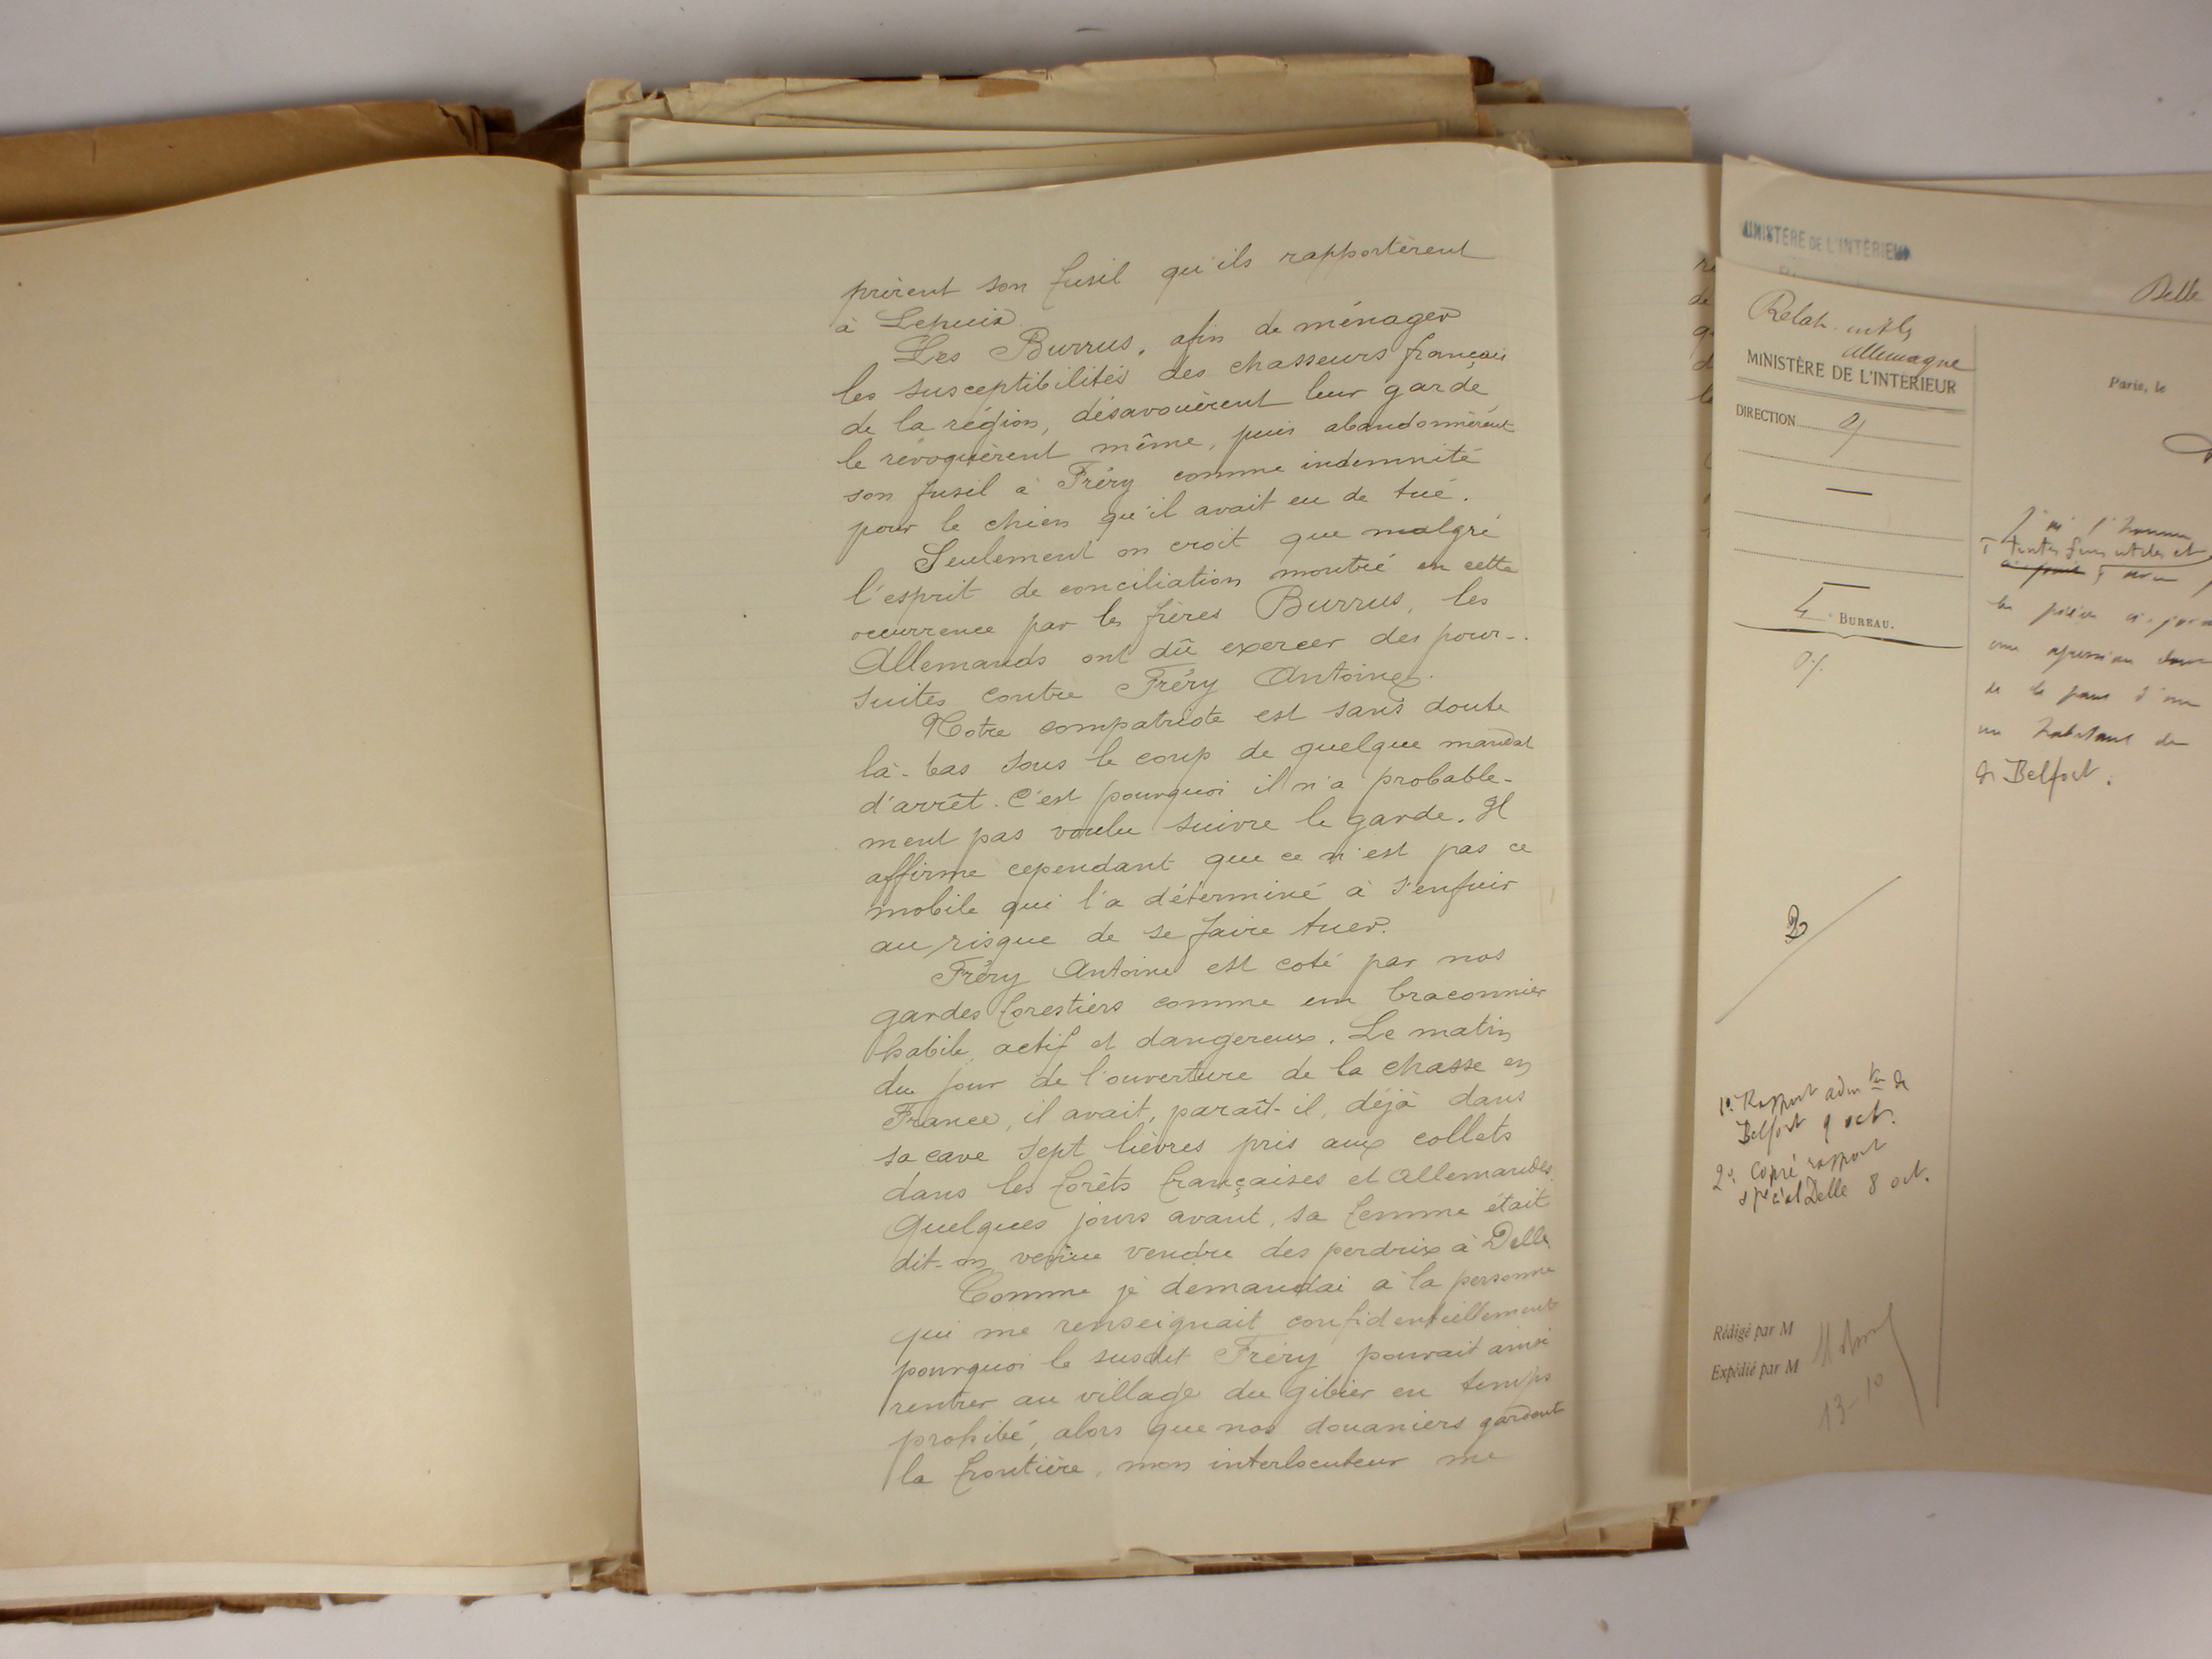 prirent son fusil qu'ils rapportèrent
à Lepuix
Les Burrus, afin de ménager
les susceptibilités des chasseurs français
de la région, désavouèrent leur garde
le révoquèrent même, puis abandonnèrent
son fusil à Fréry comme indemnité
pour le chien qu'il avait eu de tué.
Seulement on croit que malgré
l'esprit de conciliation montré en cette
occurrence par les frères Burrus, les
Allemands ont dû exercer des pour-
suites contre Fréry Antoine.
Notre compatriote est sans doute
là-bas sous le coup de quelque mandat
d'arrêt. C'est pourquoi il n'a probable-
ment pas voulu suivre le garde. Il
affirme cependant que ce n'est pas ce
mobile qui l'a déterminé à s'enfuir
au risque de se faire tuer.
Fréry Antoine est coté par nos
gardes forestiers comme un braconnier
habile, actif et dangereux. Le matin
du jour de l'ouverture de la chasse en
France, il avait, paraît-il, déjà dans
sa cave sept lièvres pris aux collets
dans les forêts françaises et allemandes.
Quelques jours avant, sa femme était
dit-on venue vendre des perdrix à Delle
Comme je demandai à la personne
qui me renseignait confidentiellement
pourquoi le susdit Fréry pouvait ainsi
rentrer au village du gibier en temps
prohibé, alors que nos douaniers gardent
la frontière, mon interlocuteur me
MINISTÈRE DE L'INTÉRIEUR
Delle
Relat.
Allemagne
MINISTÈRE DE L'INTÉRIEUR
Paris, le
DIRECTION
4e BUREAU.
J'ai l'honneur
à toutes fins utiles et
un habitant de
de Belfort.
1° Rapport admteur de
Belfort 9 oct.
2° Copie rapport
spécial Delle 8 oct.
Rédigé par M
Expédié par M
13-10